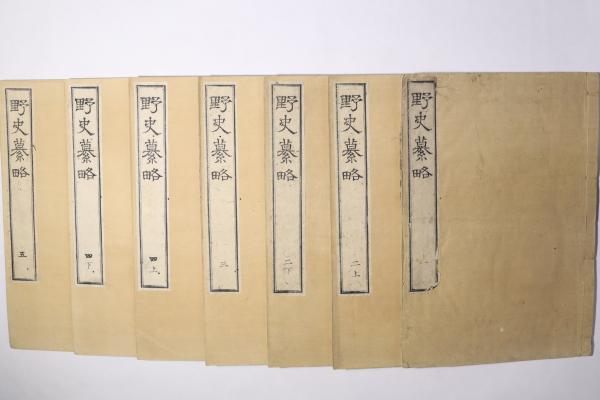 野史纂略 一
野史纂略 二上
野史纂略 二下
野史纂略 三
野史纂略 四上
野史纂略 四下
野史纂略 五